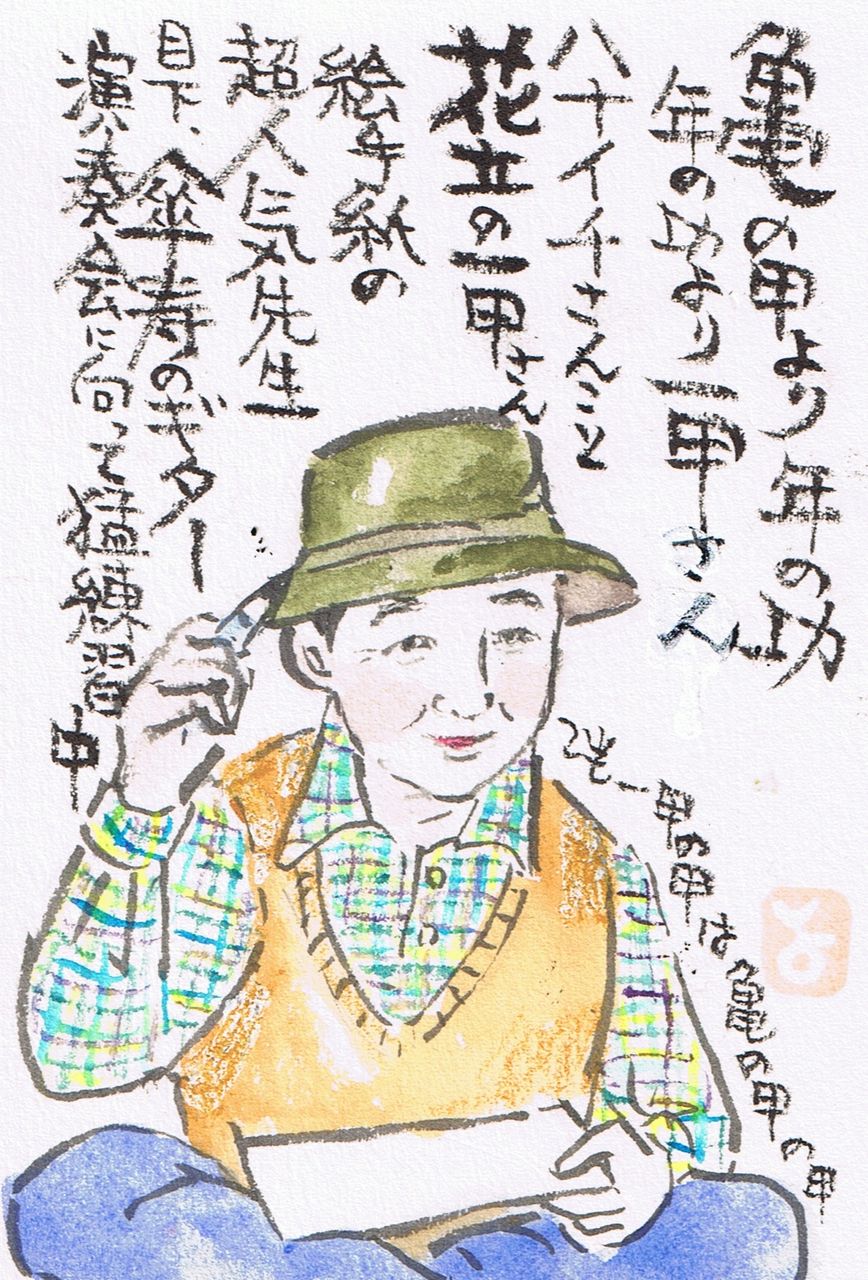 亀の甲より年の功
年の功より一甲さん
八十イチさんこと
花立の一甲さん
絵手紙の
超人気先生
目下、傘寿のギター
演奏会に向って猛練習中
一甲の甲は亀の甲の甲